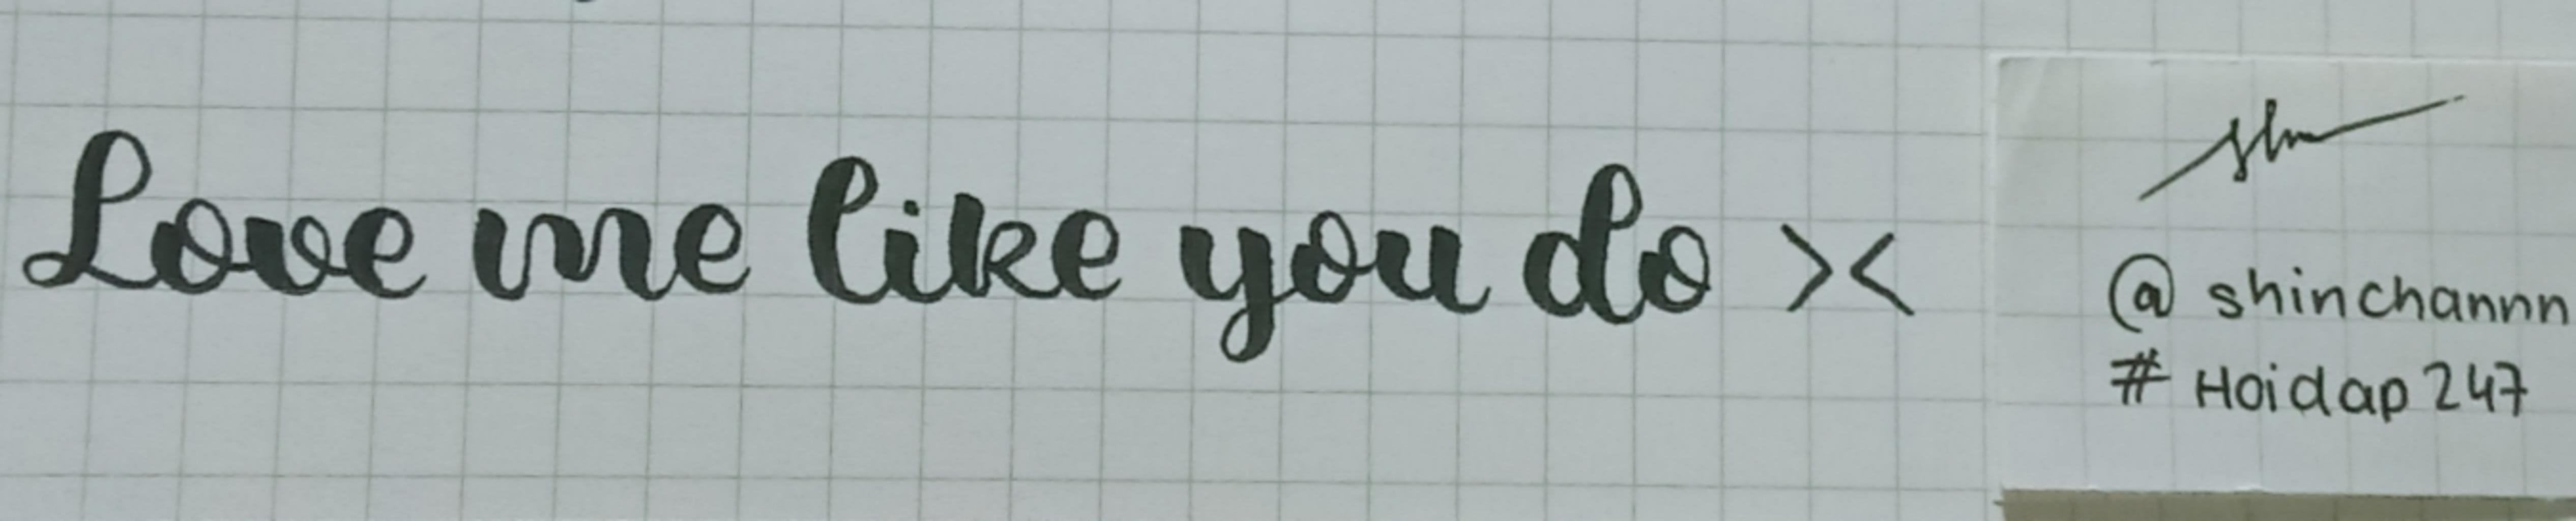 Love me like you do ><
@ shinchannn
# Hoidap 247